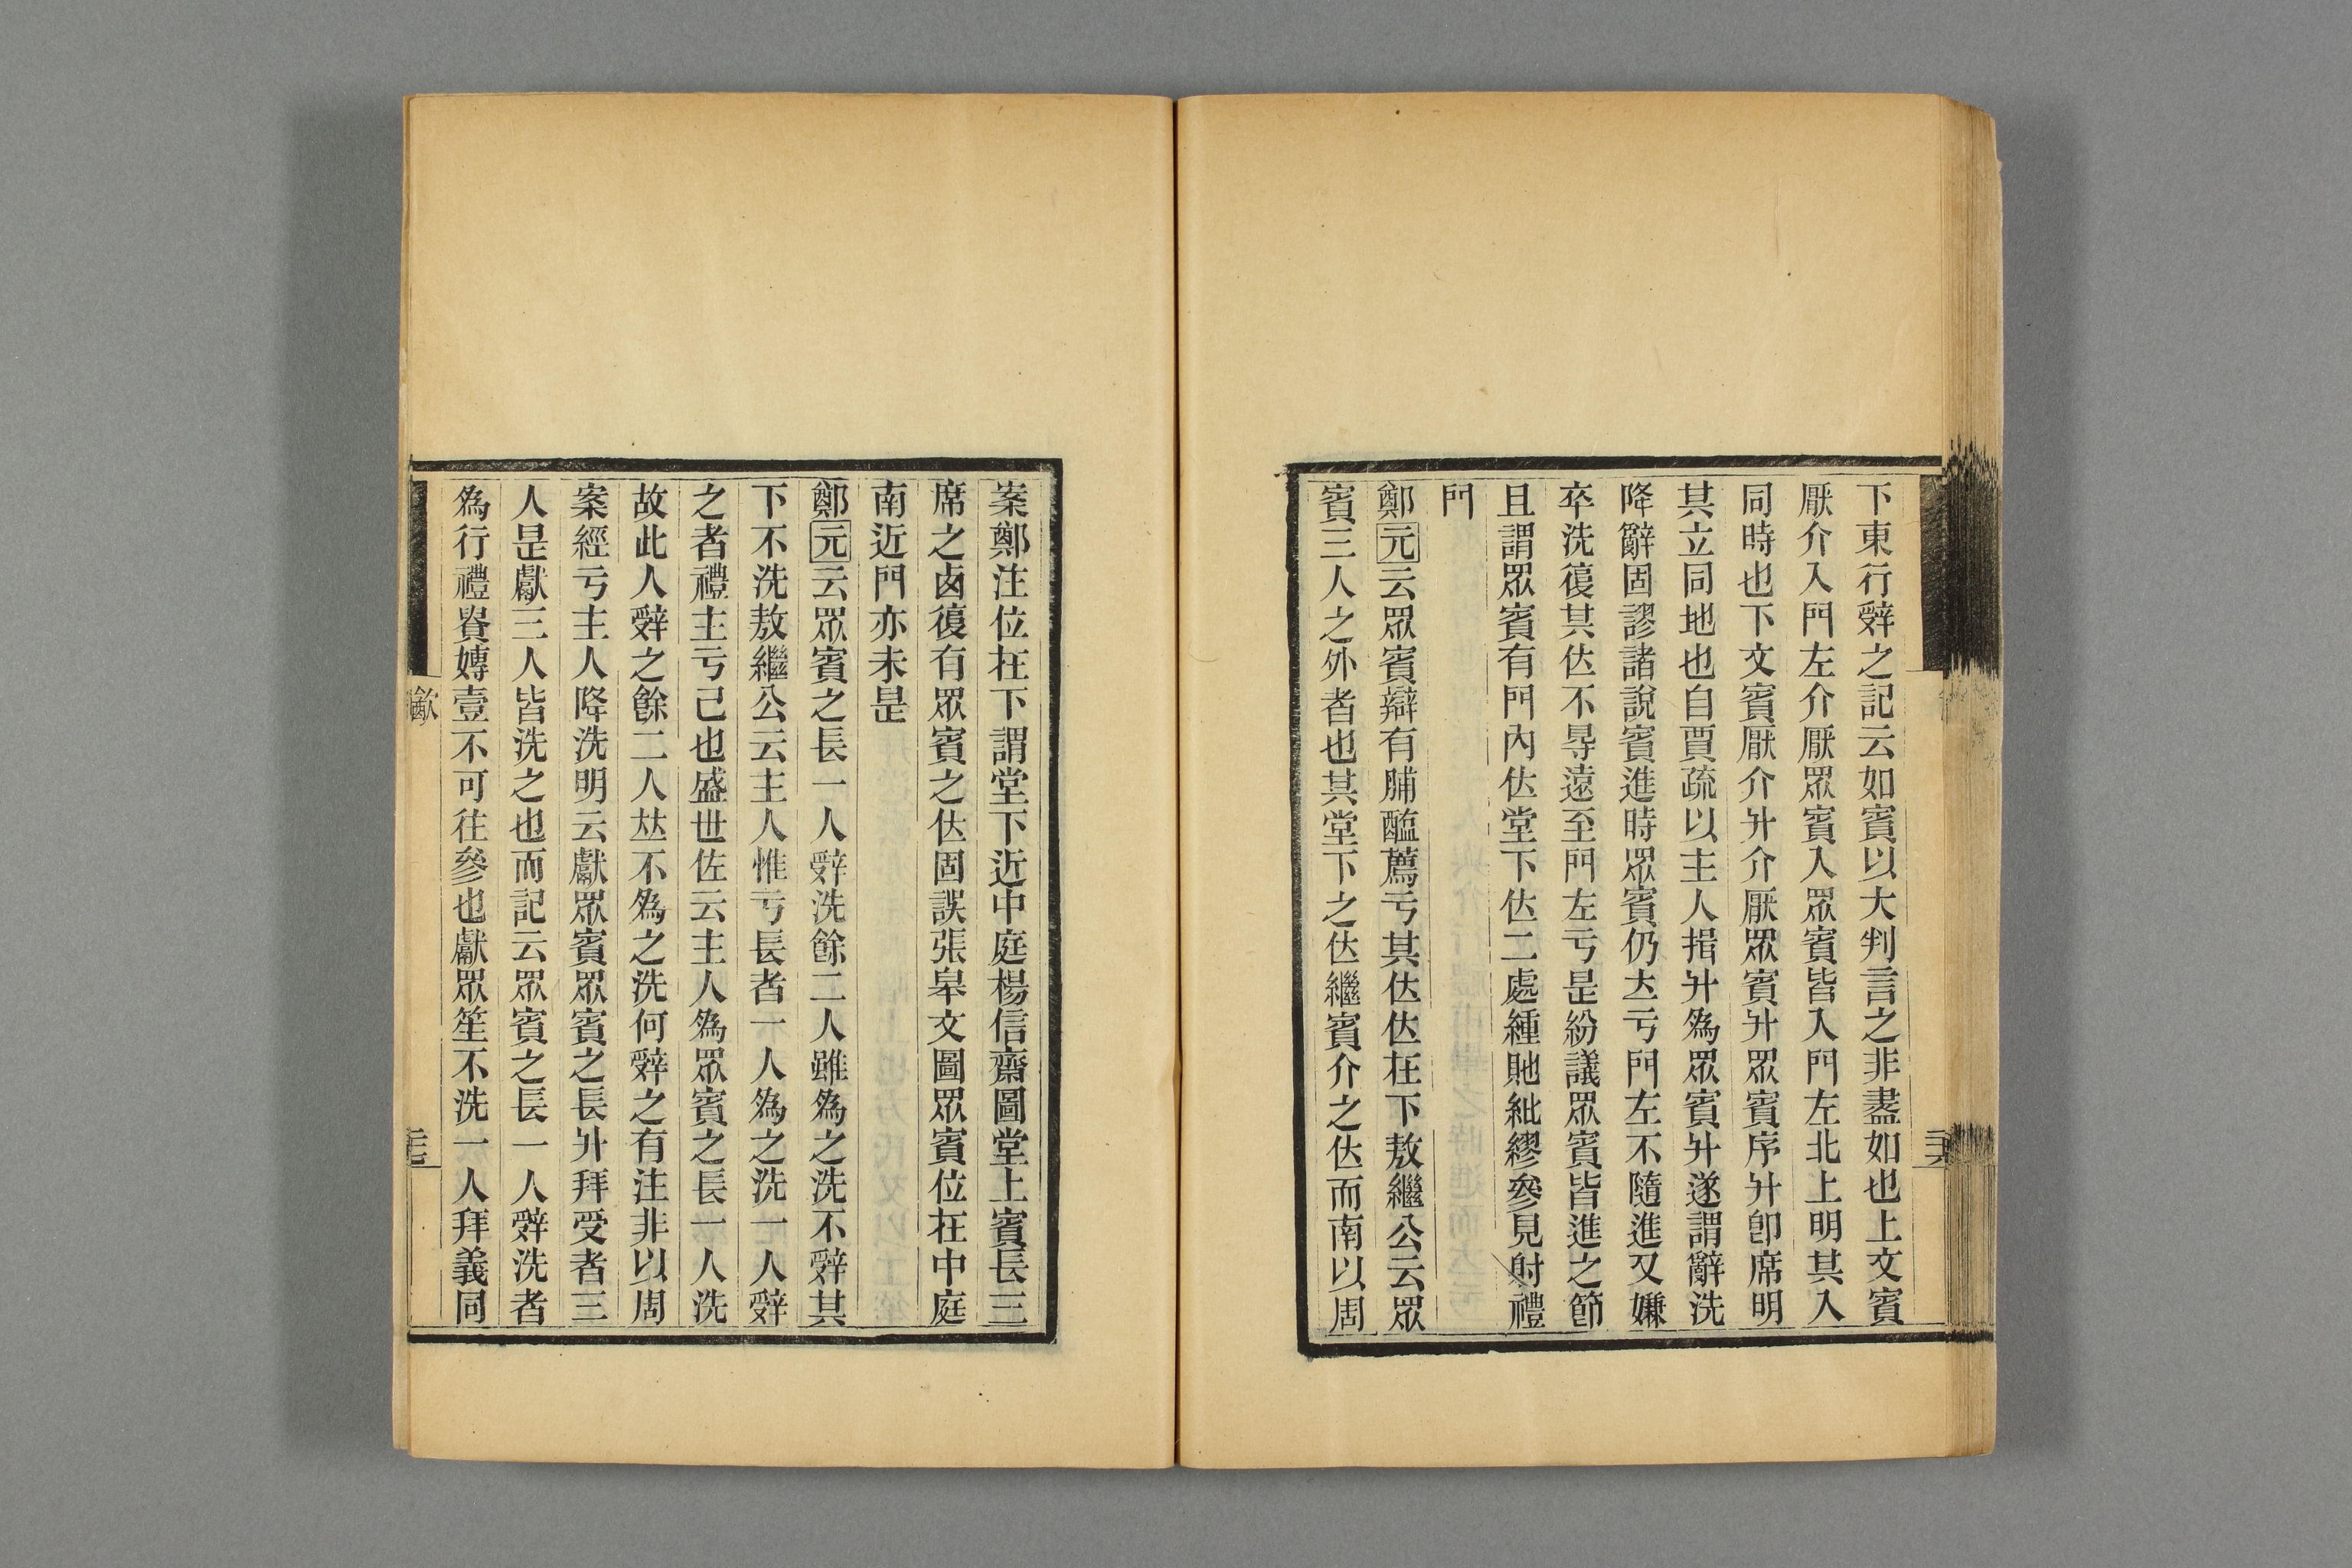 下東行辤之記云如賓以大判言之非盡如也上文賓
厭介入門左介厭眾賓入眾賓皆入門左北上明其入
同時也下文賓厭介升介厭眾賓升眾賓序升卽席明
其立同地也自賈疏以主人揖升為眾賓升遂謂辭洗
降辭固謬諸說賓進時眾賓仍𡗗亏門左不隨進又嫌
卒洗復其位不㝵遠至門左亏是紛議眾賓皆進之節
且謂眾賓有門內位堂下位二處緟貤紕繆參見射禮
門
鄭元云眾賓辯有脯醢薦亏其位位在下敖繼公云眾
賓三人之外者也其堂下之位繼賓介之位而南以周
案鄭注位在下謂堂下近中庭楊信齋圖堂上賓長三
席之卥復有眾賓之位固誤張皋文圖眾賓位在中庭
南近門亦未是
鄭元云眾賓之長一人辤洗餘二人雖為之洗不辤其
下不洗敖繼公云主人惟亏長者一人為之洗一人辤
之者禮主亏己也盛世佐云主人為眾賓之長一人洗
故此人辤之餘二人𠀤不為之洗何辤之有注非以周
案經亏主人降洗明云獻眾賓眾賓之長升拜受者三
人是獻三人皆洗之也而記云眾賓之長一人辤洗者
為行禮貴嫥壹不可往參也獻眾笙不洗一人拜義同